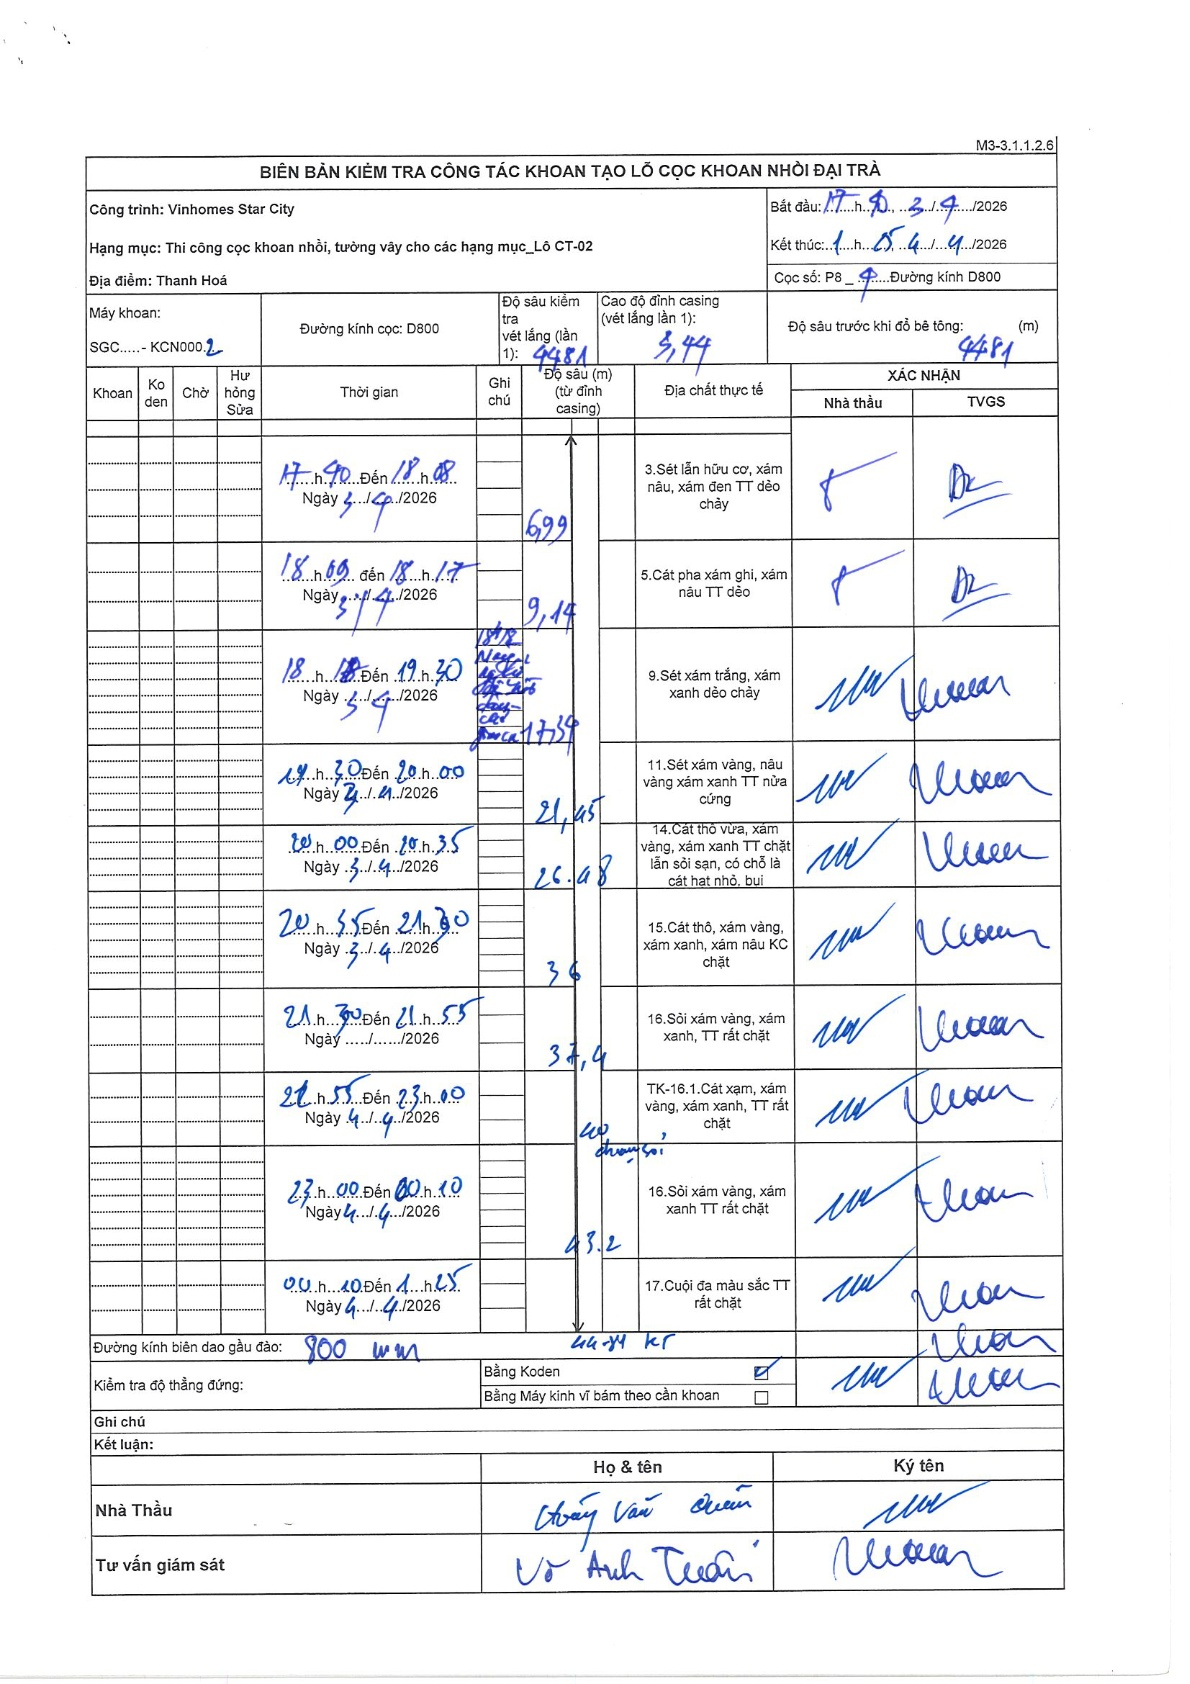 M3-3.1.1.2.6
BIÊN BẢN KIỂM TRA CÔNG TÁC KHOAN TẠO LỖ CỌC KHOAN NHỒI ĐẠI TRÀ
Công trình: Vinhomes Star City
Hạng mục: Thi công cọc khoan nhồi, tường vây cho các hạng mục_Lô CT-02
Địa điểm: Thanh Hoá
Bắt đầu: 17 h 40, 3/4/2026
Kết thúc: 1 h 25, 4/4/2026
Cọc số: P8 _ 4 Đường kính D800
Máy khoan:
SGC.....- KCN000.2
Đường kính cọc: D800
Độ sâu kiểm
tra
vét lắng (lần
1): 4481
Cao độ đỉnh casing
(vét lắng lần 1):
3,44
Độ sâu trước khi đổ bê tông: (m)
4481
Khoan
Ko
den
Chờ
Hư
hỏng
Sửa
Thời gian
Ghi
chú
Độ sâu (m)
(từ đỉnh
casing)
Địa chất thực tế
XÁC NHẬN
Nhà thầu
TVGS
17 h 40 Đến 18 h 08
Ngày 3/4/2026
6,99
3.Sét lẫn hữu cơ, xám
nâu, xám đen TT dẻo
chảy
18 h 09 đến 18 h 17
Ngày 3/4/2026
9,14
5.Cát pha xám ghi, xám
nâu TT dẻo
18 h 18 Đến 19 h 30
Ngày 3/4/2026
17,34
9.Sét xám trắng, xám
xanh dẻo chảy
19 h 30 Đến 20 h 00
Ngày 3/4/2026
21,45
11.Sét xám vàng, nâu
vàng xám xanh TT nửa
cứng
20 h 00 Đến 20 h 35
Ngày 3/4/2026
26.48
14.Cát thô vừa, xám
vàng, xám xanh TT chặt
lẫn sỏi sạn, có chỗ là
cát hạt nhỏ, bụi
20 h 35 Đến 21 h 30
Ngày 3/4/2026
36
15.Cát thô, xám vàng,
xám xanh, xám nâu KC
chặt
21 h 30 Đến 21 h 55
Ngày ...../....../2026
37,4
16.Sỏi xám vàng, xám
xanh, TT rất chặt
21 h 55 Đến 23 h 00
Ngày 4/4/2026
40
TK-16.1.Cát xạm, xám
vàng, xám xanh, TT rất
chặt
23 h 00 Đến 00 h 10
Ngày 4/4/2026
43.2
16.Sỏi xám vàng, xám
xanh TT rất chặt
00 h 10 Đến 1 h 25
Ngày 4/4/2026
44.81 KT
17.Cuội đa màu sắc TT
rất chặt
Đường kính biên dao gầu đào: 800 mm
Kiểm tra độ thẳng đứng:
Bằng Koden
Bằng Máy kinh vĩ bám theo cần khoan
Ghi chú
Kết luận:
Họ & tên
Ký tên
Nhà Thầu
Văn
Tư vấn giám sát
Võ Anh Tuấn